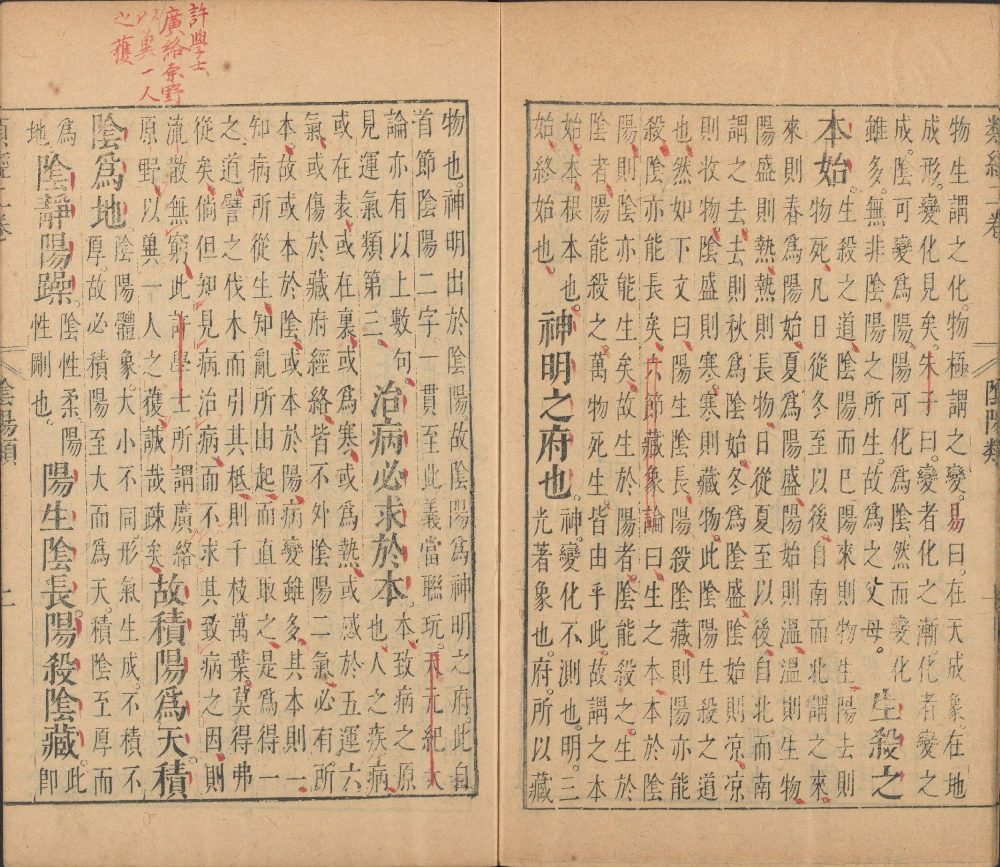 許學士
廣絡原野
以兾一人
之獲
類經二卷
陰陽類
物生謂之化物極謂之變易曰在天成象在地
成形變化見矣朱子曰變者化之漸化者變之
成陰可變爲陽陽可化爲陰然而變化
雖多無非陰陽之所生故爲之父母
生殺之
本始
生殺之道陰陽而已陽來則物生陽去則
物死凡日從冬至以後自南而北謂之來
來則春爲陽始夏爲陽盛陽始則溫溫則生物
陽盛則熱熱則長物日從夏至以後自北而南
謂之去去則秋爲陰始冬爲陰盛陰始則凉凉
則收物陰盛則寒寒則藏物此陰陽生殺之道
也然如下文曰陽生陰長陽殺陰藏則陽亦能
殺陰亦能長矣六節藏象論曰生之本本於陰
陽則陰亦能生矣故生於陽者陰能殺之生於
陰者陽能殺之萬物死生皆由乎此故謂之本
始本根本也
始終始也
神明之府也
神變化不測也明三
光著象也府所以藏
物也神明出於陰陽故陰陽爲神明之府此自
首節陰陽二字一貫至此義當聯玩天元紀大
論亦有以上數句
見運氣類第三
治病必求於本
本致病之原
也人之疾病
或在表或在裏或爲寒或爲熱或感於五運六
氣或傷於藏府經絡皆不外陰陽二氣必有所
本故或本於陰或本於陽病變雖多其本則一
知病所從生知亂所由起而直取之是爲得一
之道譬之伐木而引其柢則千枝萬葉莫得弗
從矣倘但知見病治病而不求其致病之因則
流散無窮此許學士所謂廣絡
原野以兾一人之獲誠哉疎矣
故積陽爲天積
陰爲地
陰陽體象大小不同形氣生成不積不
厚故必積陽至大而爲天積陰至厚而
爲
地
陰靜陽躁
陰性柔陽
性剛也
陽生陰長陽殺陰藏
此
即
陰陽類